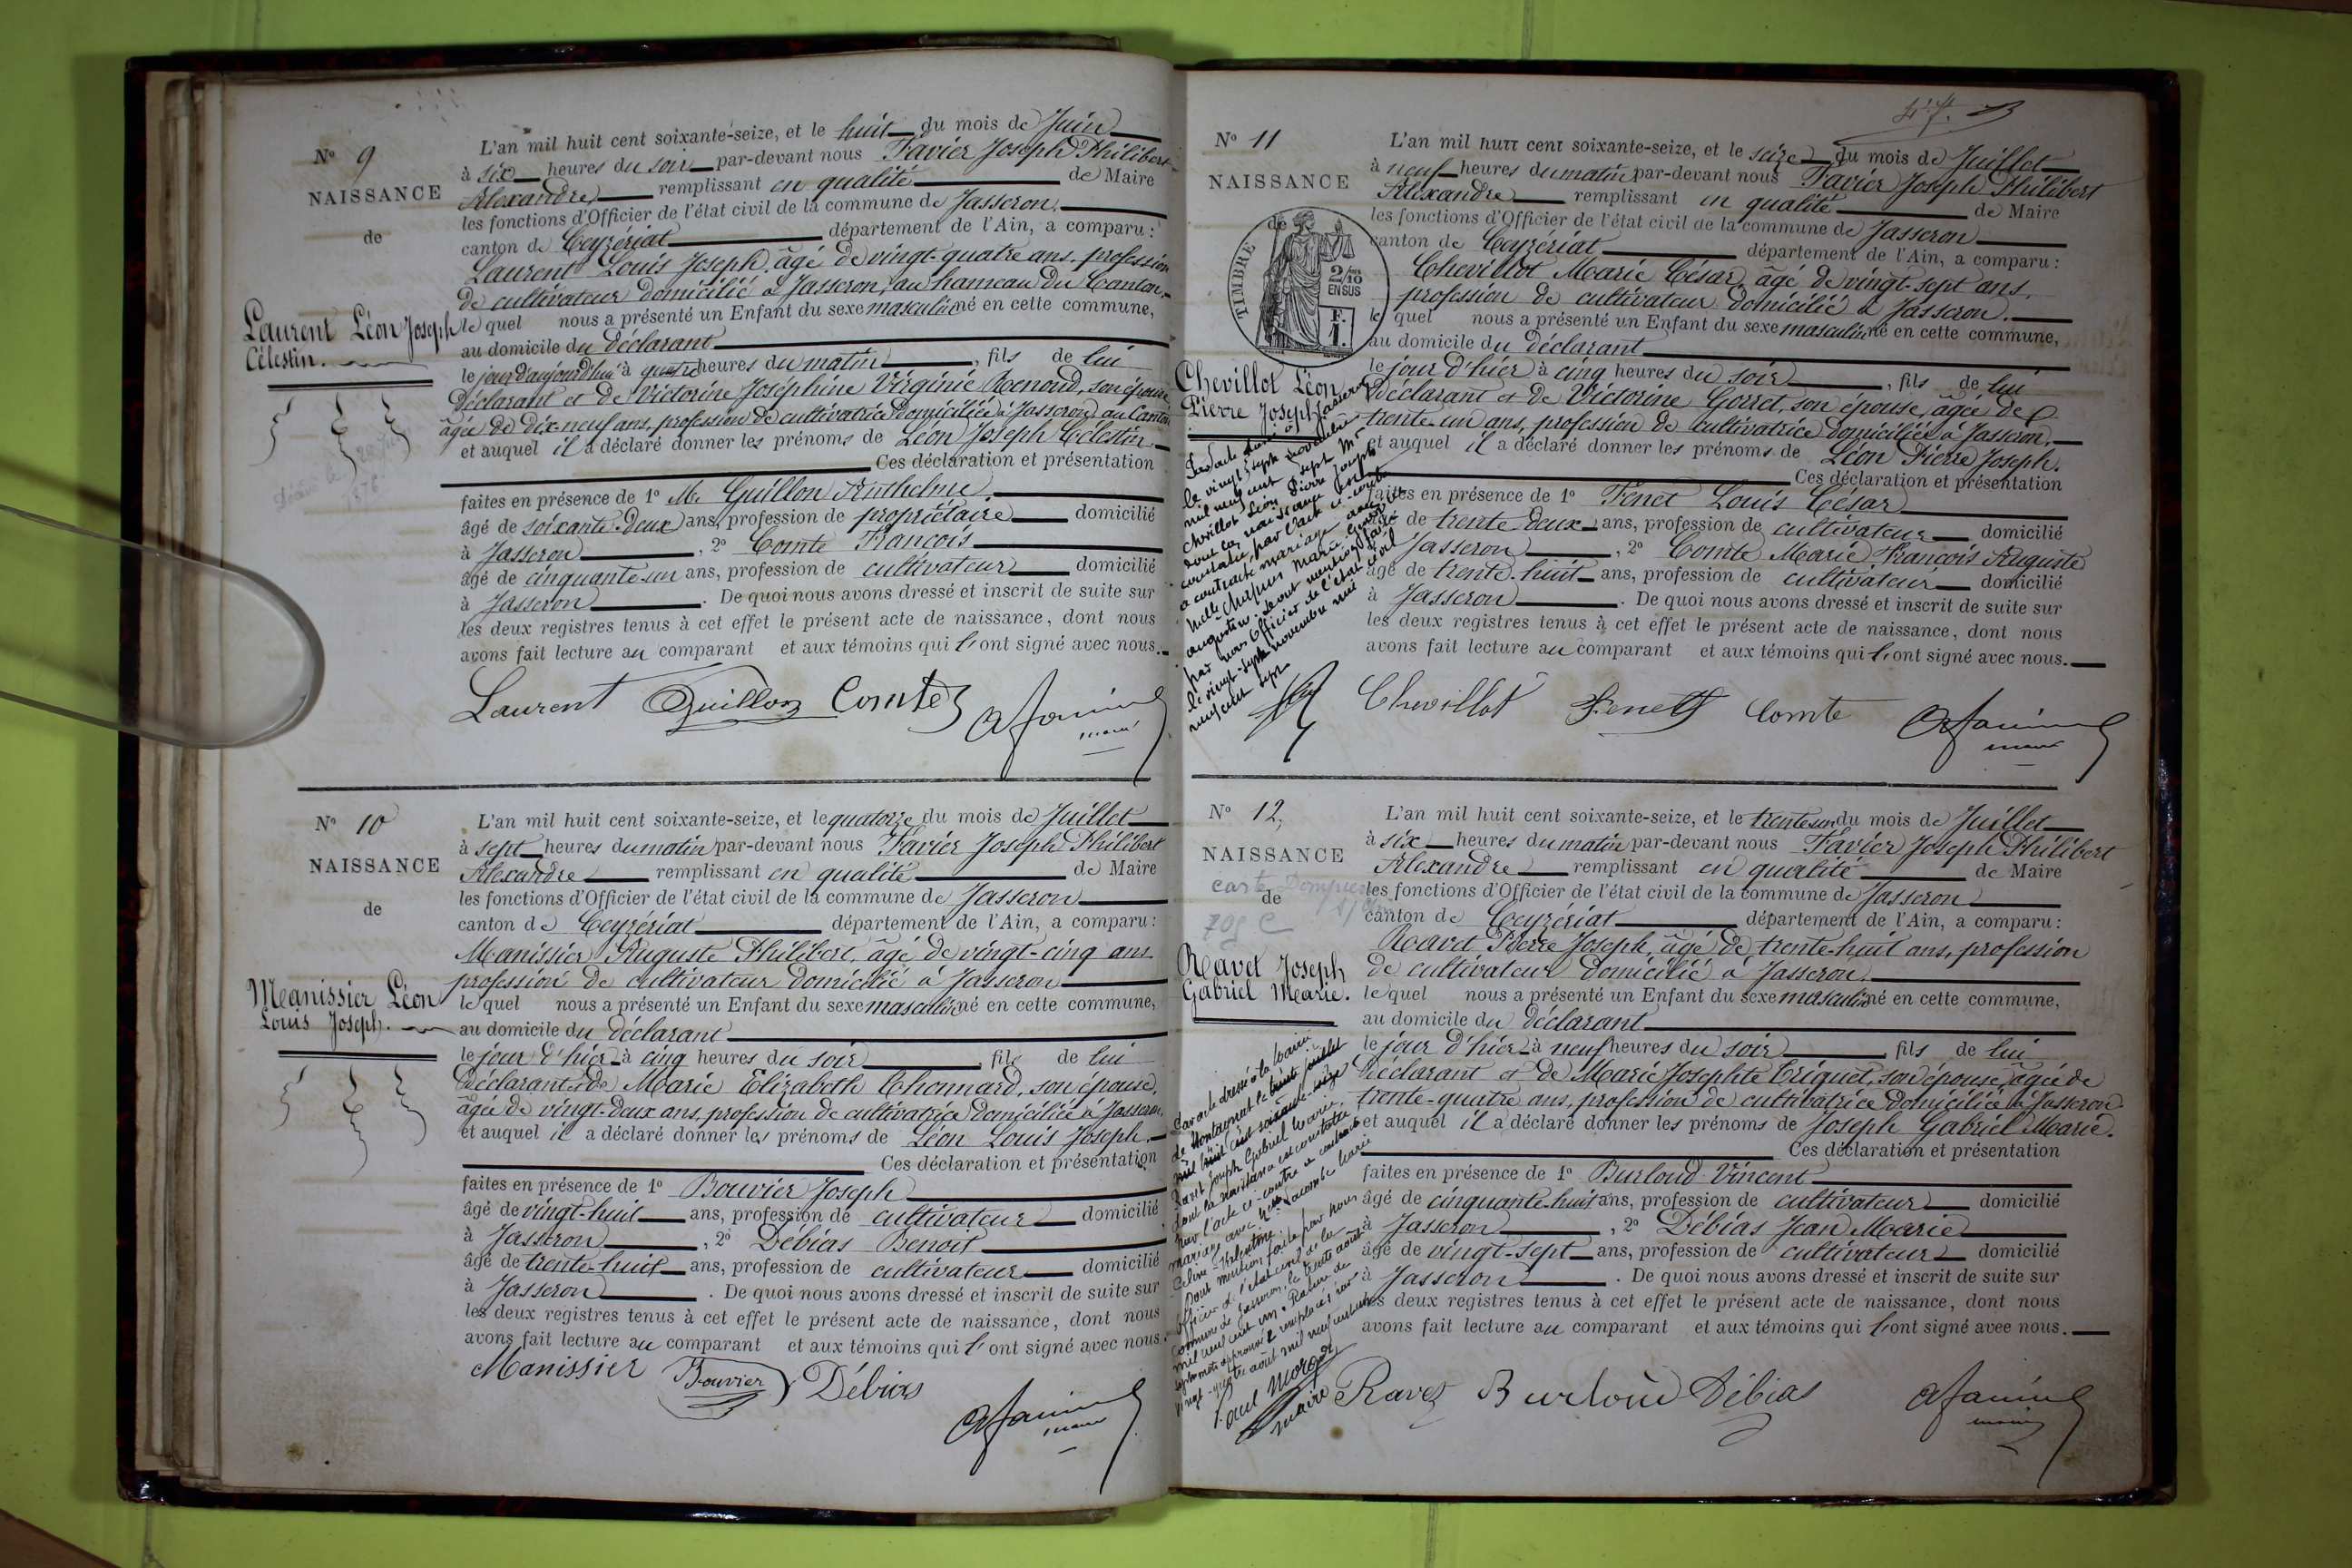 N° 9
NAISSANCE
de
Laurent Léon Joseph
Célestin.
L'an mil huit cent soixante-seize, et le huit du mois de Juin
à six heures du soir par-devant nous Favier Joseph Philibert
Alexandre remplissant en qualité de Maire
les fonctions d'Officier de l'état civil de la commune de Jasseron
canton de Ceyzériat département de l'Ain, a comparu :
Laurent Louis Joseph, âgé de vingt-quatre ans, profession
de cultivateur domicilié à Jasseron, au hameau du Canton,
lequel nous a présenté un Enfant du sexe masculin né en cette commune,
au domicile du déclarant
le jour d'aujourd'hui à quatre heures du matin, fils de lui
déclarant et de Victorine Joséphine Virginie Renoud, son épouse
âgée de dix-neuf ans, profession de cultivatrice domiciliée à Jasseron au Canton
et auquel il a déclaré donner les prénoms de Léon Joseph Célestin
Ces déclaration et présentation
faites en présence de 1° M. Guillon Anthelme
âgé de soixante-deux ans, profession de propriétaire domicilié
à Jasseron, 2° Comte François
âgé de cinquante-un ans, profession de cultivateur domicilié
à Jasseron. De quoi nous avons dressé et inscrit de suite sur
les deux registres tenus à cet effet le présent acte de naissance, dont nous
avons fait lecture au comparant et aux témoins qui l'ont signé avec nous.
Laurent Guillon Comte
maire
N° 10
NAISSANCE
de
Manissier Léon
Louis Joseph.
L'an mil huit cent soixante-seize, et le quatorze du mois de Juillet
à sept heures du matin par-devant nous Favier Joseph Philibert
Alexandre remplissant en qualité de Maire
les fonctions d'Officier de l'état civil de la commune de Jasseron
canton de Ceyzériat département de l'Ain, a comparu :
Manissier Auguste Philibert, âgé de vingt-cinq ans
profession de cultivateur domicilié à Jasseron
lequel nous a présenté un Enfant du sexe masculin né en cette commune,
au domicile du déclarant
le jour d'hier à cinq heures du soir, fils de lui
déclarant et de Marie Elizabeth Chonnard, son épouse,
âgée de vingt-deux ans, profession de cultivatrice domiciliée à Jasseron
et auquel il a déclaré donner les prénoms de Léon Louis Joseph.
Ces déclaration et présentation
faites en présence de 1° Bouvier Joseph
âgé de vingt-huit ans, profession de cultivateur domicilié
à Jasseron, 2° Débias Benoit
âgé de trente-huit ans, profession de cultivateur domicilié
à Jasseron. De quoi nous avons dressé et inscrit de suite sur
les deux registres tenus à cet effet le présent acte de naissance, dont nous
avons fait lecture au comparant et aux témoins qui l'ont signé avec nous.
Manissier Bouvier Débias
N° 11
NAISSANCE
de
TIMBRE
2/10
EN SUS
F.
1.
Chevillot Léon
Pierre Joseph
L'an mil huit cent soixante-seize, et le seize du mois de Juillet
à neuf heures du matin par-devant nous Favier Joseph Philibert
Alexandre remplissant en qualité de Maire
les fonctions d'Officier de l'état civil de la commune de Jasseron
canton de Ceyzériat département de l'Ain, a comparu :
Chevillot Marie César, âgé de vingt-sept ans,
profession de cultivateur domicilié à Jasseron.
lequel nous a présenté un Enfant du sexe masculin né en cette commune,
au domicile du déclarant
le jour d'hier à cinq heures du soir, fils de lui
déclarant et de Victorine Gorret, son épouse, âgée de
trente-un ans, profession de cultivatrice domiciliée à Jasseron.
et auquel il a déclaré donner les prénoms de Léon Pierre Joseph.
Ces déclaration et présentation
faites en présence de 1° Fenet Louis César
âgé de trente-deux ans, profession de cultivateur domicilié
Jasseron, 2° Comte Marie François Auguste
âgé de trente-huit ans, profession de cultivateur domicilié
à Jasseron. De quoi nous avons dressé et inscrit de suite sur
les deux registres tenus à cet effet le présent acte de naissance, dont nous
avons fait lecture au comparant et aux témoins qui l'ont signé avec nous.
le vingt sept novembre
mil neuf cent sept Mr
Chevillot Léon Pierre Joseph
dont la naissance est
constatée par l'acte ci-contre
a contracté mariage avec
Marie
Augustine. Dont mention faite
par nous Officier de l'état civil
le vingt-sept novembre mil
neuf cent sept
Chevillot Fenet Comte
N° 12.
NAISSANCE
de
carte
709 C
Ravet Joseph
Gabriel Marie.
L'an mil huit cent soixante-seize, et le trente-un du mois de Juillet
à six heures du matin par-devant nous Favier Joseph Philibert
Alexandre remplissant en qualité de Maire
les fonctions d'Officier de l'état civil de la commune de Jasseron
canton de Ceyzériat département de l'Ain, a comparu :
Ravet Pierre Joseph, âgé de trente-huit ans, profession
de cultivateur domicilié à Jasseron
lequel nous a présenté un Enfant du sexe masculin né en cette commune,
au domicile du déclarant
le jour d'hier à neuf heures du soir, fils de lui
déclarant et de Marie Josephte Triquet, son épouse, âgée de
trente-quatre ans, profession de cultivatrice domiciliée à Jasseron
et auquel il a déclaré donner les prénoms de Joseph Gabriel Marie.
Ces déclaration et présentation
faites en présence de 1° Burloud Vincent
âgé de cinquante-huit ans, profession de cultivateur domicilié
à Jasseron, 2° Débias Jean Marie
âgé de vingt-sept ans, profession de cultivateur domicilié
à Jasseron. De quoi nous avons dressé et inscrit de suite sur
les deux registres tenus à cet effet le présent acte de naissance, dont nous
avons fait lecture au comparant et aux témoins qui l'ont signé avec nous.
Par acte dressé à la mairie
de Montagnat le trente juillet
mil huit cent soixante-seize
Ravet Joseph Gabriel Marie
dont la naissance est constatée
par l'acte ci-contre a contracté
mariage avec Lacombe Marie
Dont mention faite par nous
officier de l'état civil de la
commune de Jasseron, le trente août
Paul Morgon
maire
Ravet Burloud Débias